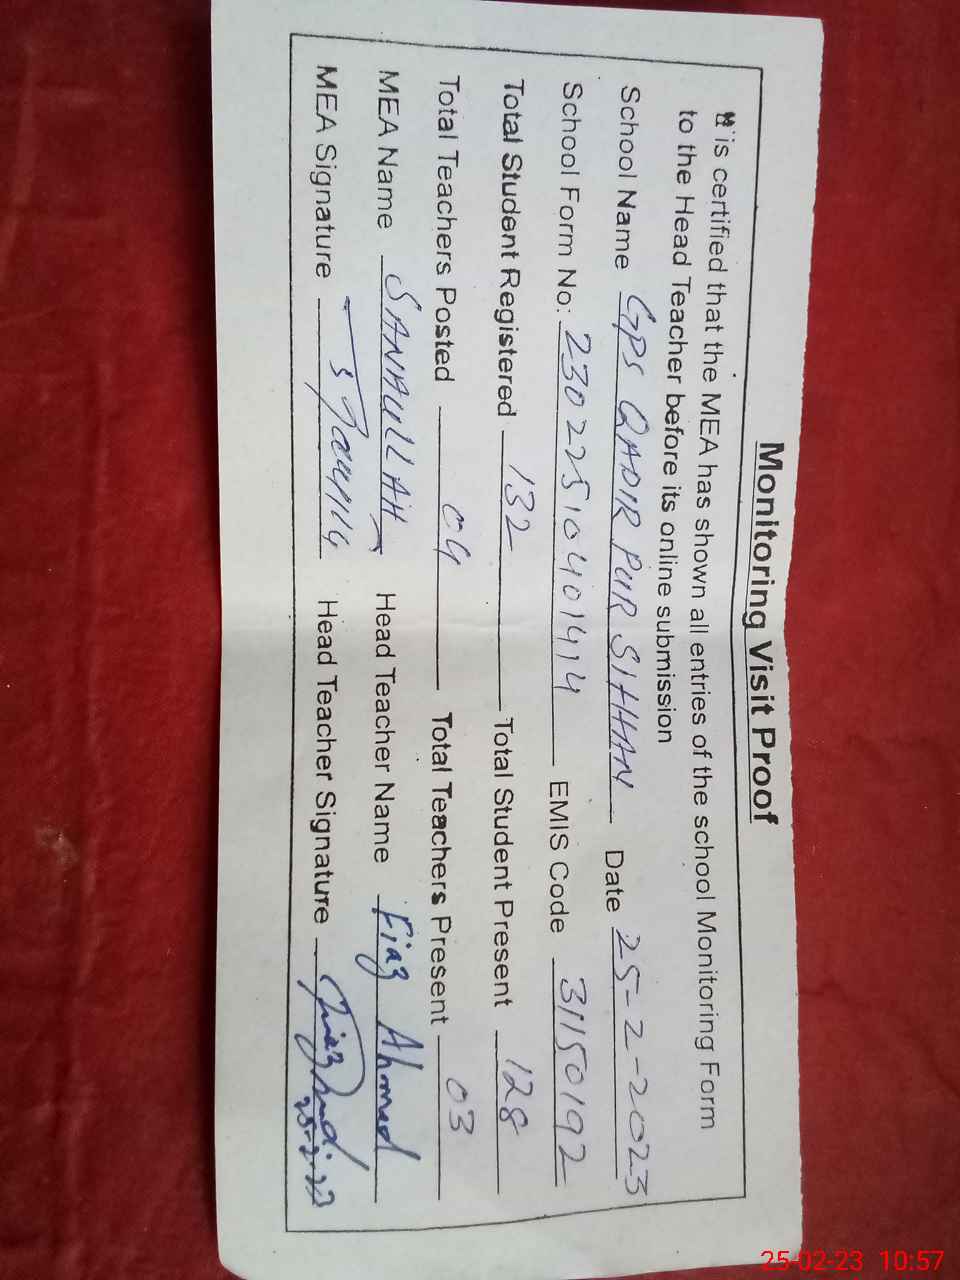 Monitoring Visit Proof
It is certified that the MEA has shown all entries of the school Monitoring Form
to the Head Teacher before its online submission
School Name GPS QADIR PUR SIHHAN Date 25-2-2023
School Form No: 23022510401414 EMIS Code 31150192
Total Student Registered 132 Total Student Present 128
Total Teachers Posted 04 Total Teachers Present 03
MEA Name SANAULLAH Head Teacher Name Fiaz Ahmad
MEA Signature Head Teacher Signature
25-2-23
25-02-23 10:57